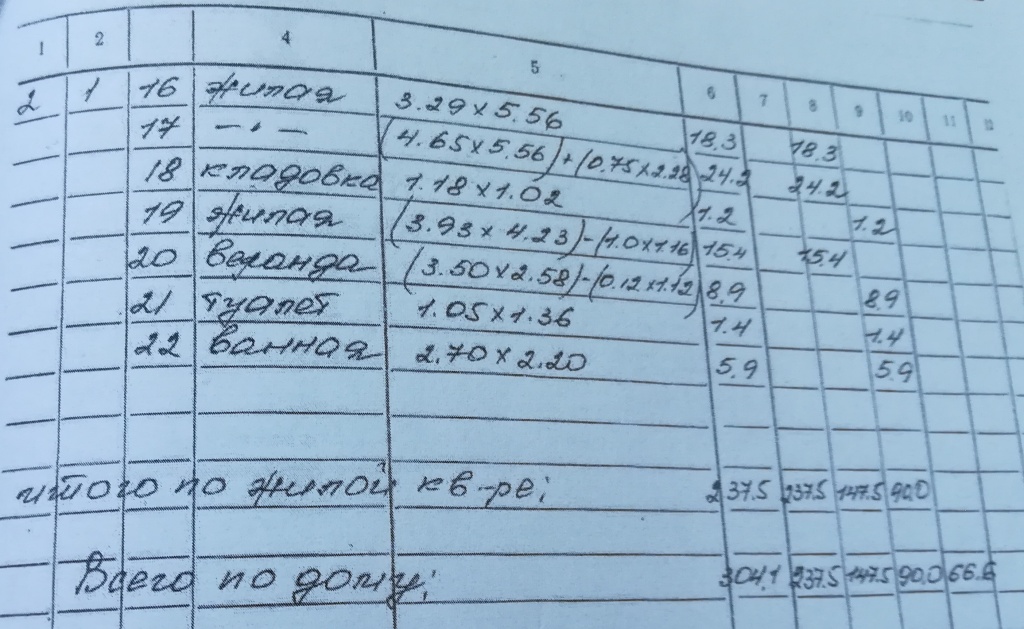 1 2 4 5 6 7 8 9 10 11 12
2 1 16 жилая 3.29 x 5.56 18.3 18.3
17 — · — (4.65 x 5.56) + (0.75 x 2.28) 24.2 24.2
18 кладовка 1.18 x 1.02 1.2 1.2
19 жилая (3.93 x 4.23) - (1.0 x 1.16) 15.4 15.4
20 веранда (3.50 x 2.58) - (0.12 x 1.12) 8.9 8.9
21 туалет 1.05 x 1.36 1.4 1.4
22 ванная 2.70 x 2.20 5.9 5.9
итого по жилой кв-ре: 237.5 237.5 147.5 90.0
Всего по дому: 304.1 237.5 147.5 90.0 66.6